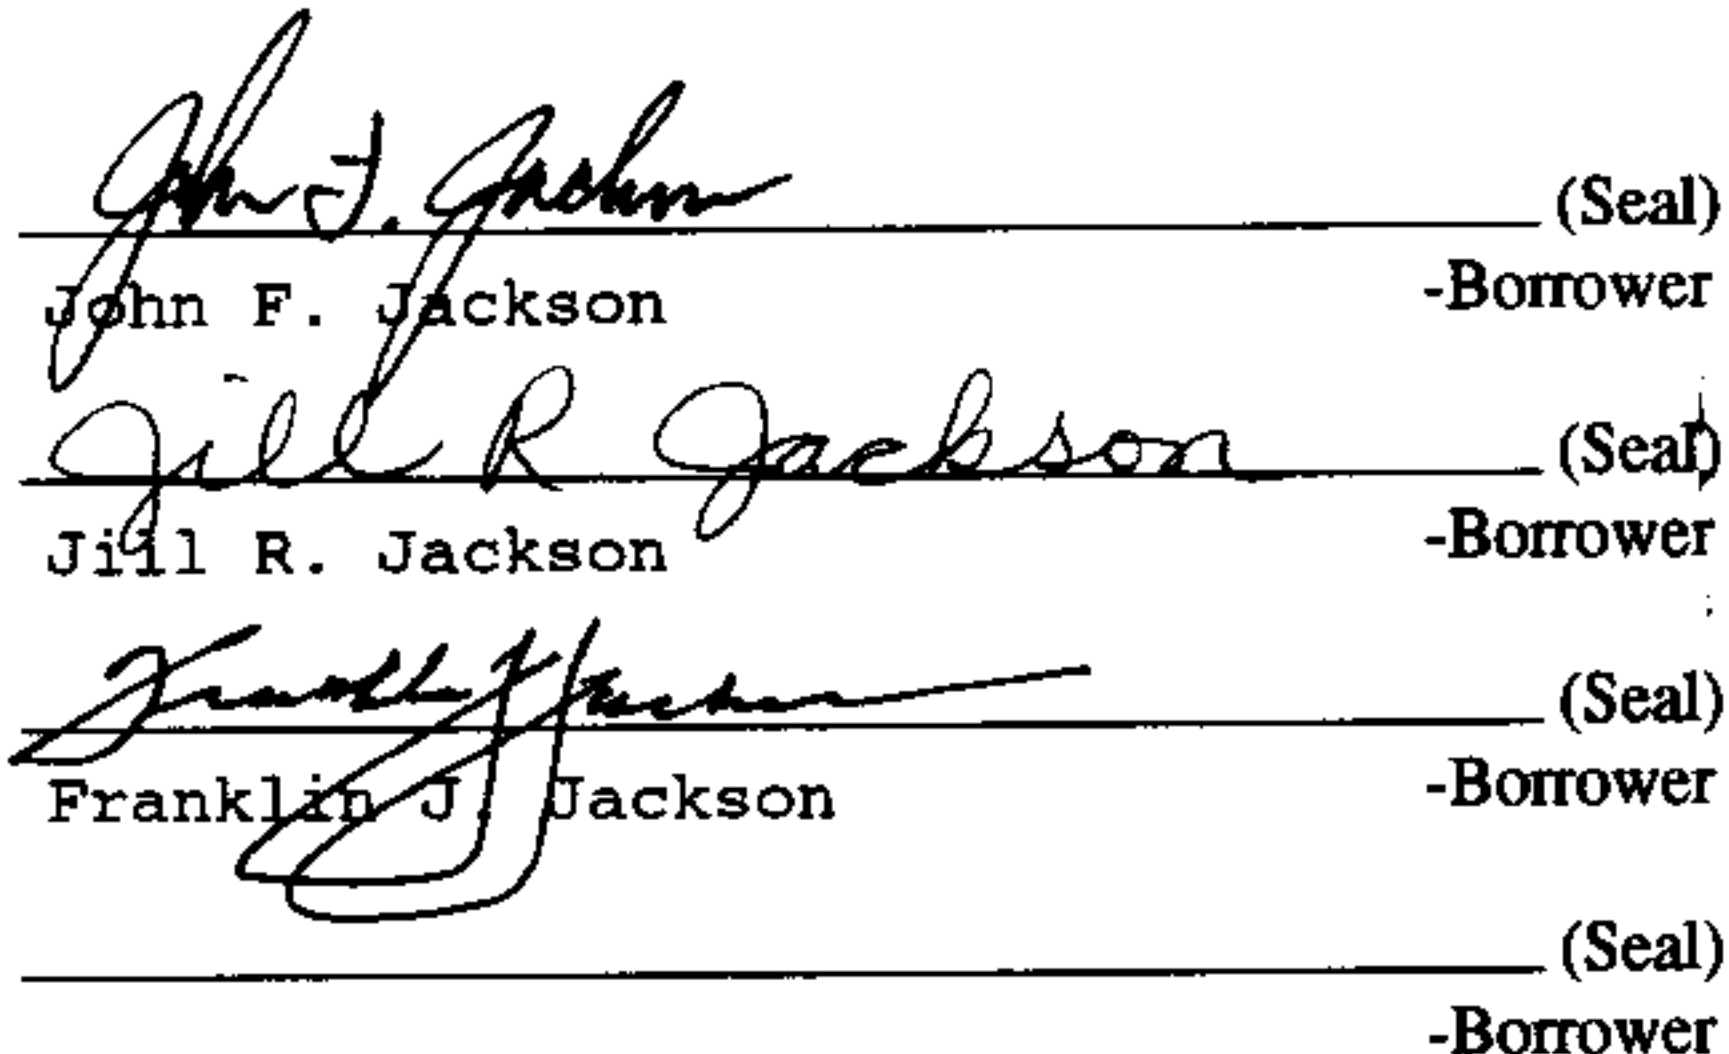 John F. Jackson (Seal)
John F. Jackson -Borrower
Jill R Jackson (Seal)
Jill R. Jackson -Borrower
Franklin J Jackson (Seal)
Franklin J. Jackson -Borrower
(Seal)
-Borrower